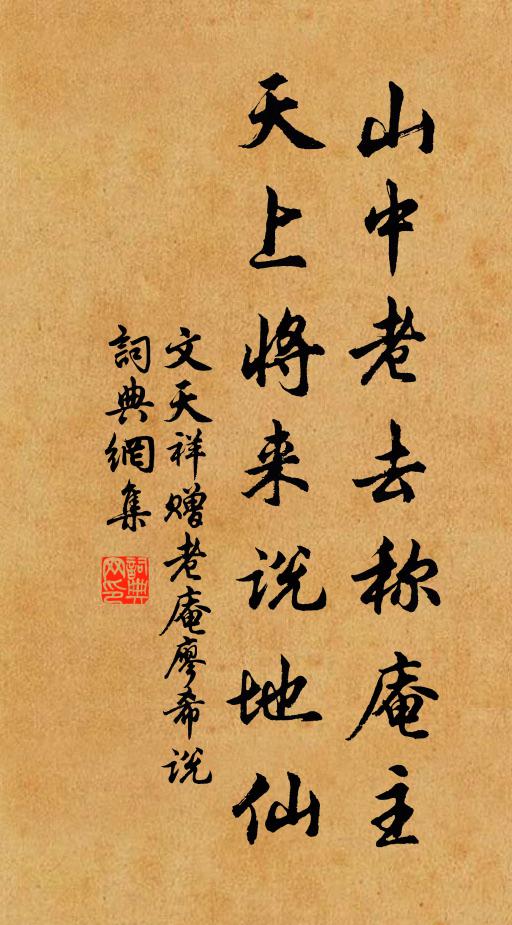 山中老去称庵主
天上将来说地仙
文天祥赠老庵廖希说
詞典網集
詞典网印